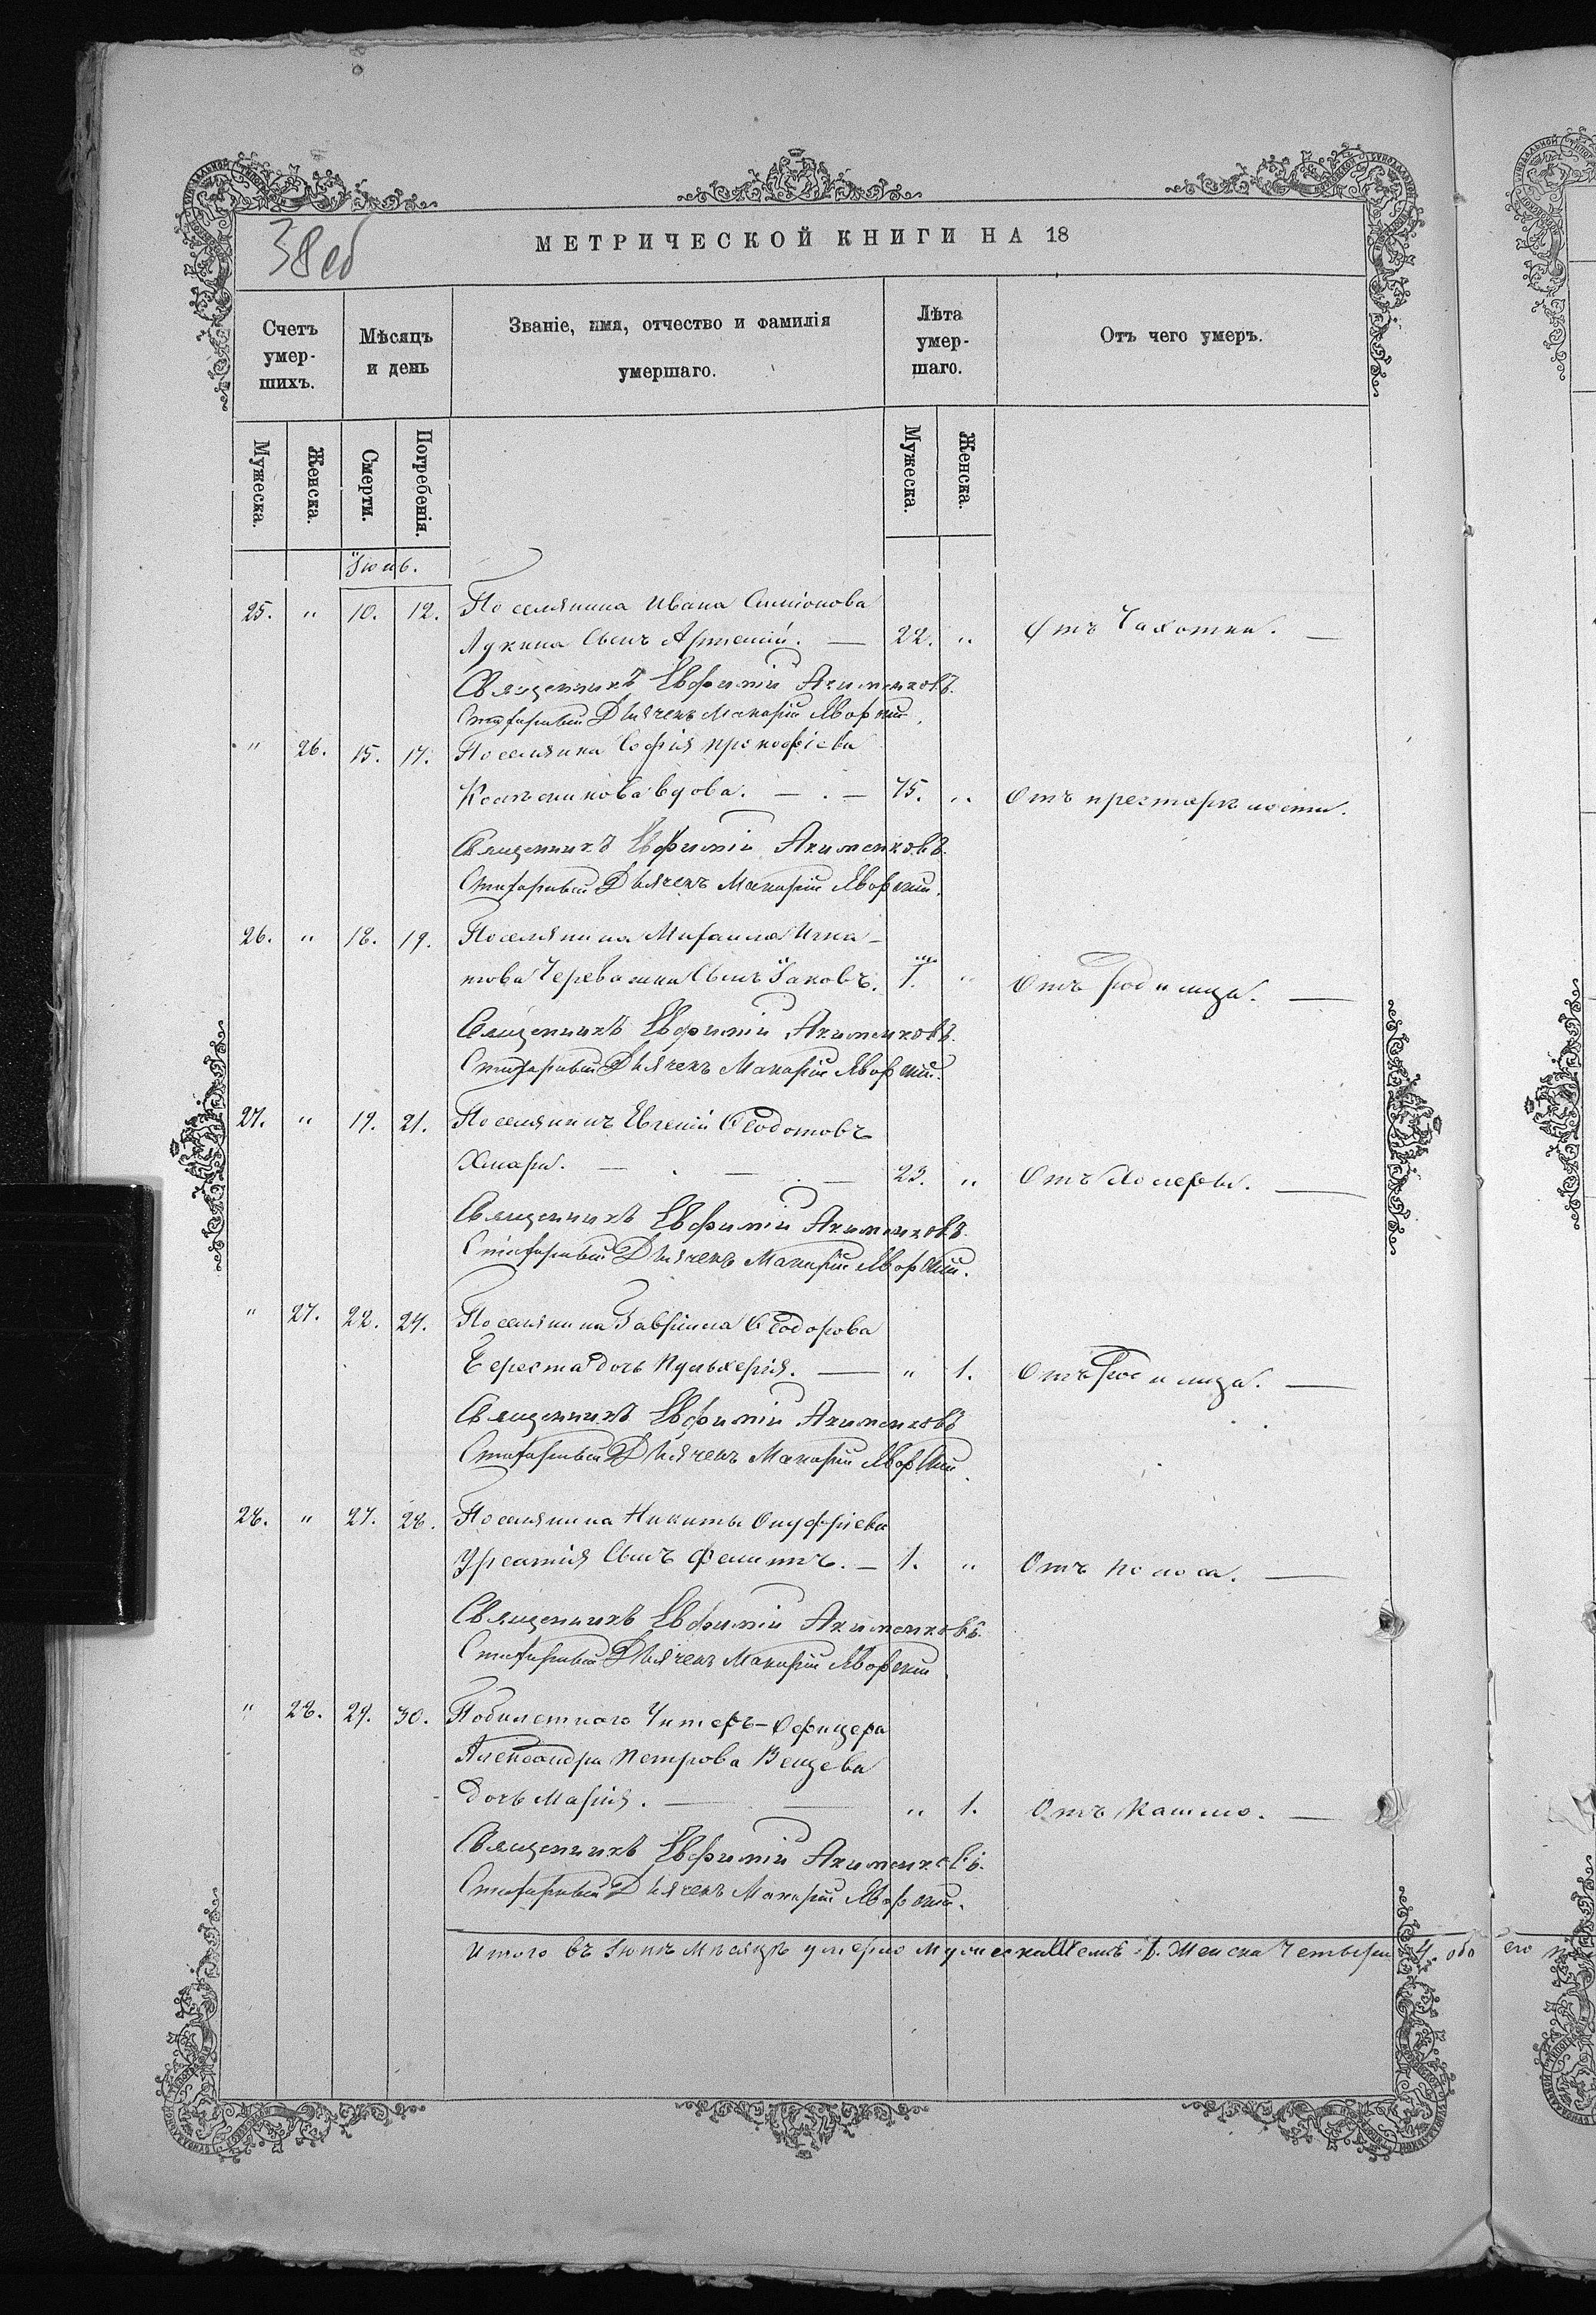 38 об
МЕТРИЧЕСКОЙ КНИГИ НА 18
Счетъ умер-шихъ.
Мѣсяцъ и день
Званіе, имя, отчество и фамилія умершаго.
Лѣта умер-шаго.
Отъ чего умеръ.
Мужеска. Женска. Смерти. Погребенія. Мужеска. Женска.
Іюнь.
25. " 10. 12. Поселянина Ивана Симіонова
Лукина сынъ Артемій. — 22. " Отъ Чахотки. —
Священникъ Евфимій Акименковъ.
Стихарный Дьячекъ Макарій Яворскій.
" 26. 15. 17. Поселянка Софія Прокофіева
Колесникова вдова. — . — 75. " Отъ престарѣлости.
Священникъ Евфимій Акименковъ.
Стихарный Дьячекъ Макарій Яворскій.
26. " 18. 19. Поселянина Михаила Игна-
това сынъ Іаковъ. 1. " Отъ родимца. —
Священникъ Евфимій Акименковъ.
Стихарный Дьячекъ Макарій Яворскій.
27. " 19. 21. Поселянинъ Евгеній Ѳеодотовъ
Хмара. — . — . — 23. " Отъ Холеры. —
Священникъ Евфимій Акименковъ.
Стихарный Дьячекъ Макарій Яворскій.
" 27. 22. 24. Поселянина Гавріила Ѳеодорова
Береста дочь Пульхерія. — " 1. Отъ родимца. —
Священникъ Евфимій Акименковъ
Стихарный Дьячекъ Макарій Яворскій.
28. " 27. 28. Поселянина Никиты Онуфріева
сынъ — 1. " Отъ поноса. —
Священникъ Евфимій Акименковъ.
Стихарный Дьячекъ Макарій Яворскій
" 28. 29. 30. Побилетнаго Унтеръ-Офицера
Александра Петрова Вещева
дочь Марія. — — " 1. Отъ Кашлю. —
Священникъ Евфимій Акименковъ.
Стихарный Дьячекъ Макарій Яворскій.
Итого въ Іюнѣ мѣсяцѣ умерло мужеска Женска Четыре 4. обо его п